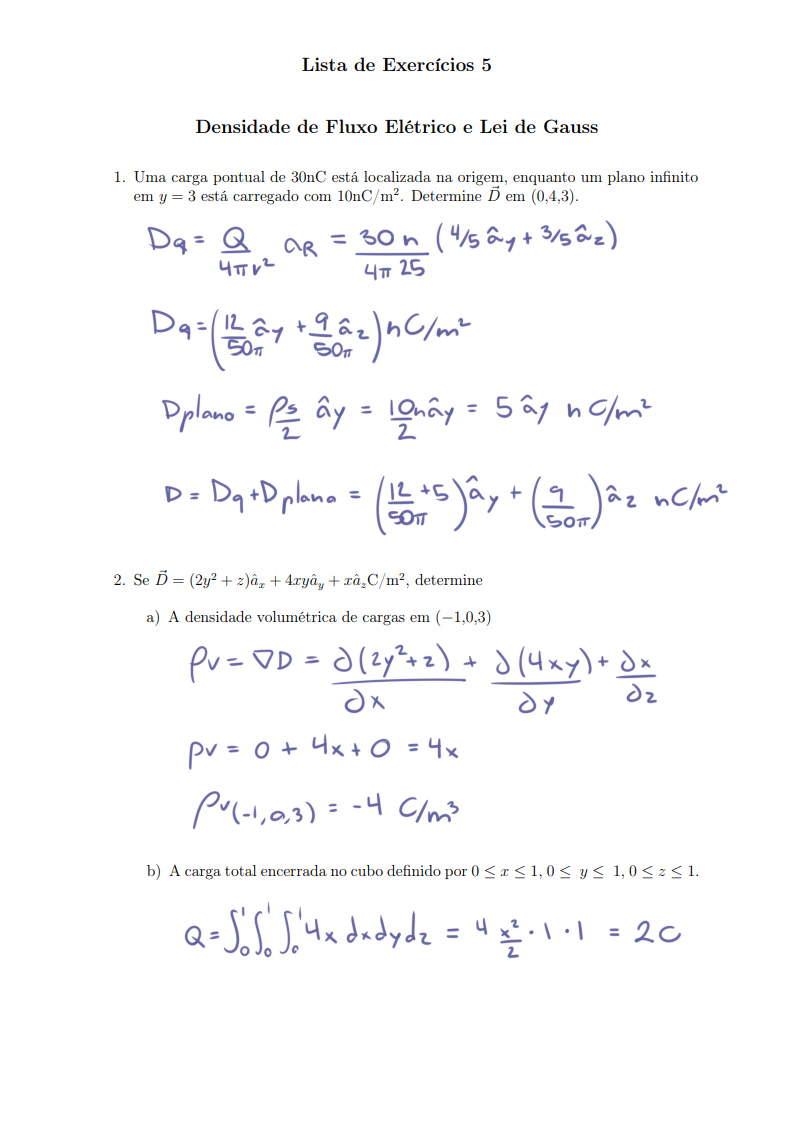 Lista de Exercícios 5
Densidade de Fluxo Elétrico e Lei de Gauss
1. Uma carga pontual de 30nC está localizada na origem, enquanto um plano infinito
em y = 3 está carregado com 10nC/m². Determine D⃗ em (0,4,3).
Dq = Q/4πr² aR = 30 n/4π 25 (4/5 ây + 3/5 âz)
Dq = (12/50π ây + 9/50π âz) nC/m²
Dplano = ρs/2 ây = 10n/2 ây = 5 ây nC/m²
D = Dq + Dplano = (12/50π + 5) ây + (9/50π) âz nC/m²
2. Se D⃗ = (2y² + z)âx + 4xyây + xâzC/m², determine
a) A densidade volumétrica de cargas em (−1,0,3)
ρv = ∇D = ∂(2y²+z)/∂x + ∂(4xy)/∂y + ∂x/∂z
ρv = 0 + 4x + 0 = 4x
ρv(-1,0,3) = -4 C/m³
b) A carga total encerrada no cubo definido por 0 ≤ x ≤ 1, 0 ≤ y ≤ 1, 0 ≤ z ≤ 1.
Q = ∫₀¹∫₀¹∫₀¹ 4x dxdydz = 4 x²/2 · 1 · 1 = 2C